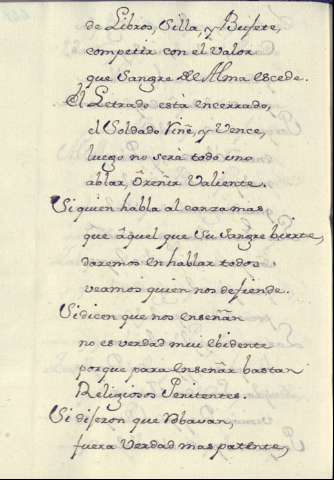 de Libros, Silla y Bufete,
competir con el valor
que Sangre del Alma escede.
El Letrado està encerrado,
el Soldado riñe, y Vence,
luego no serà todo uno
ablar, ô reñir Valiente.
Si quien habla alcanza mas
que âquel que su Sangre bierte,
daremos en hablar todos
veamos quien nos defiende.
Si dicen que nos enseñan
no es verdad mui ebidente
porque para enseñar bastan
Religiosos Penitentes.
Si dijeron que Robavan,
fuera Verdad mas patente,